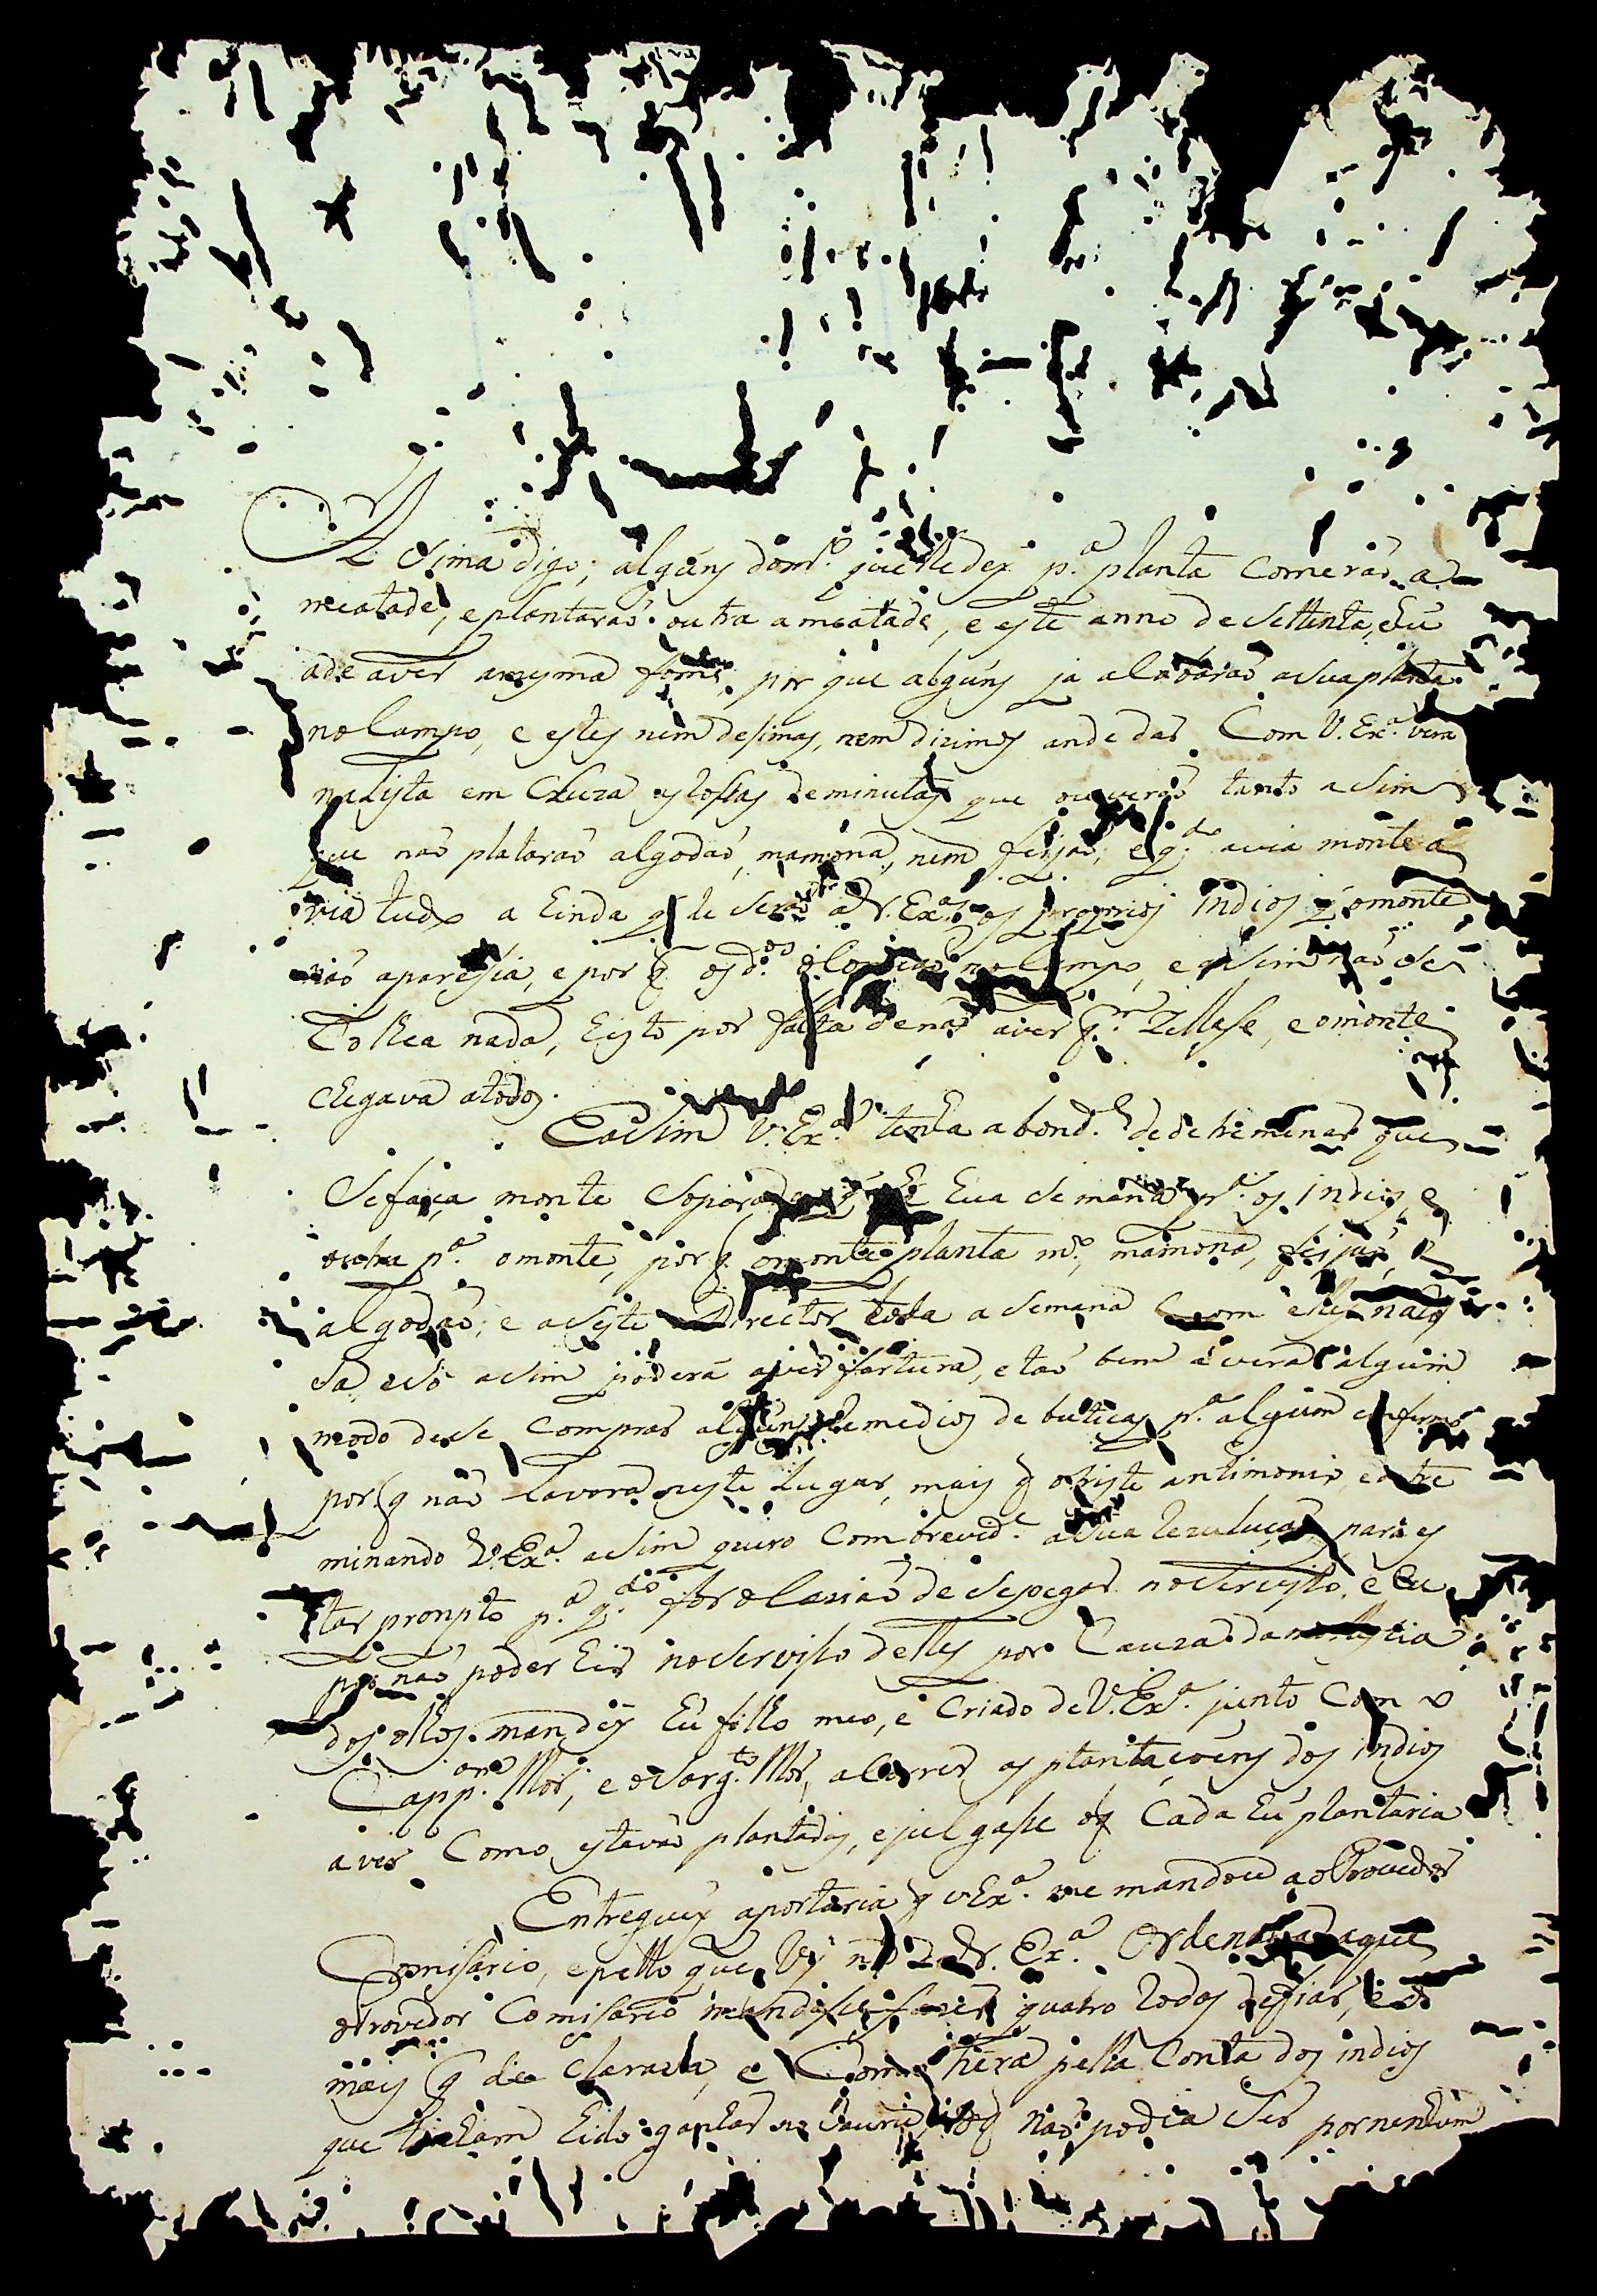 Asima digo; alguns do mº que lle dex p.ª planta comeraõ a
meatade, e plantaraõ outra a meatade, e este anno de settenta, eu
ade aver amesma fome, por que alguns ja alabaraõ asua planta
no Campo, e estes nem desimas, nem dizimos ande dar Com V. Ex.ª vera
na Lista em Cluza as tossas deminutas que ouveraõ tanto asim
que naõ plataraõ algodaõ, mamona, nem feijaõ; e q.do avia monte a
via tudo a Einda q le seraõ a V. Ex.ª os proprios indios q omonte
naõ aparesia, e por q os d.os no Campo, e asim naõ se
Collea nada, Eisto por falta de naõ aver q.m Zellase, e omonte
chegava atodos.
E asim V. Ex.ª tenha a bond.e de detremenar que
Sefaça monte Soparado Eua semana p.ª os indios, e
outra p.ª omonte, por q omonte planta m.º, mamona, feijaõ, e
algodaõ; e asiste Director toda a semana Com elles naõ
sa eso asim poderá aver fartura, e taõ bem averá algum
modo dese Comprar alguns Remedios de buticas p.ª algum enfermo
por q naõ Lavora neste Lugar, mais q otriste antimonio, e detre
minando V. Ex.ª asim quero Com brevid.e asua Rezuluçaõ para es
tar pronpto p.ª q.do for oCaziaõ de sepegar noserviso, e Eu
por naõ poder Eir noserviso delles por Cauza da molestia
dos ollos. mandey Eu fillo meo, e Criado de V. Ex.ª junto Com o
Capp.am Mor, e oSarg.to Mor, aCorrer as plantaçoens dos indios
aver Como estavaõ plantados, ejulgasse oq Cada Eu plantaria
Entreguey aportaria q V Ex.ª me mandou aoProvedor
Comisario, epello que Vy V. Ex.ª Ordenava aque
oProvedor Comisario mandase fazer quatro Rodos defiar, e
mais q de Clarava, e Como hera pella Conta dos indios
que tinham Eido gaphar no naõ podia Ser pornenhum